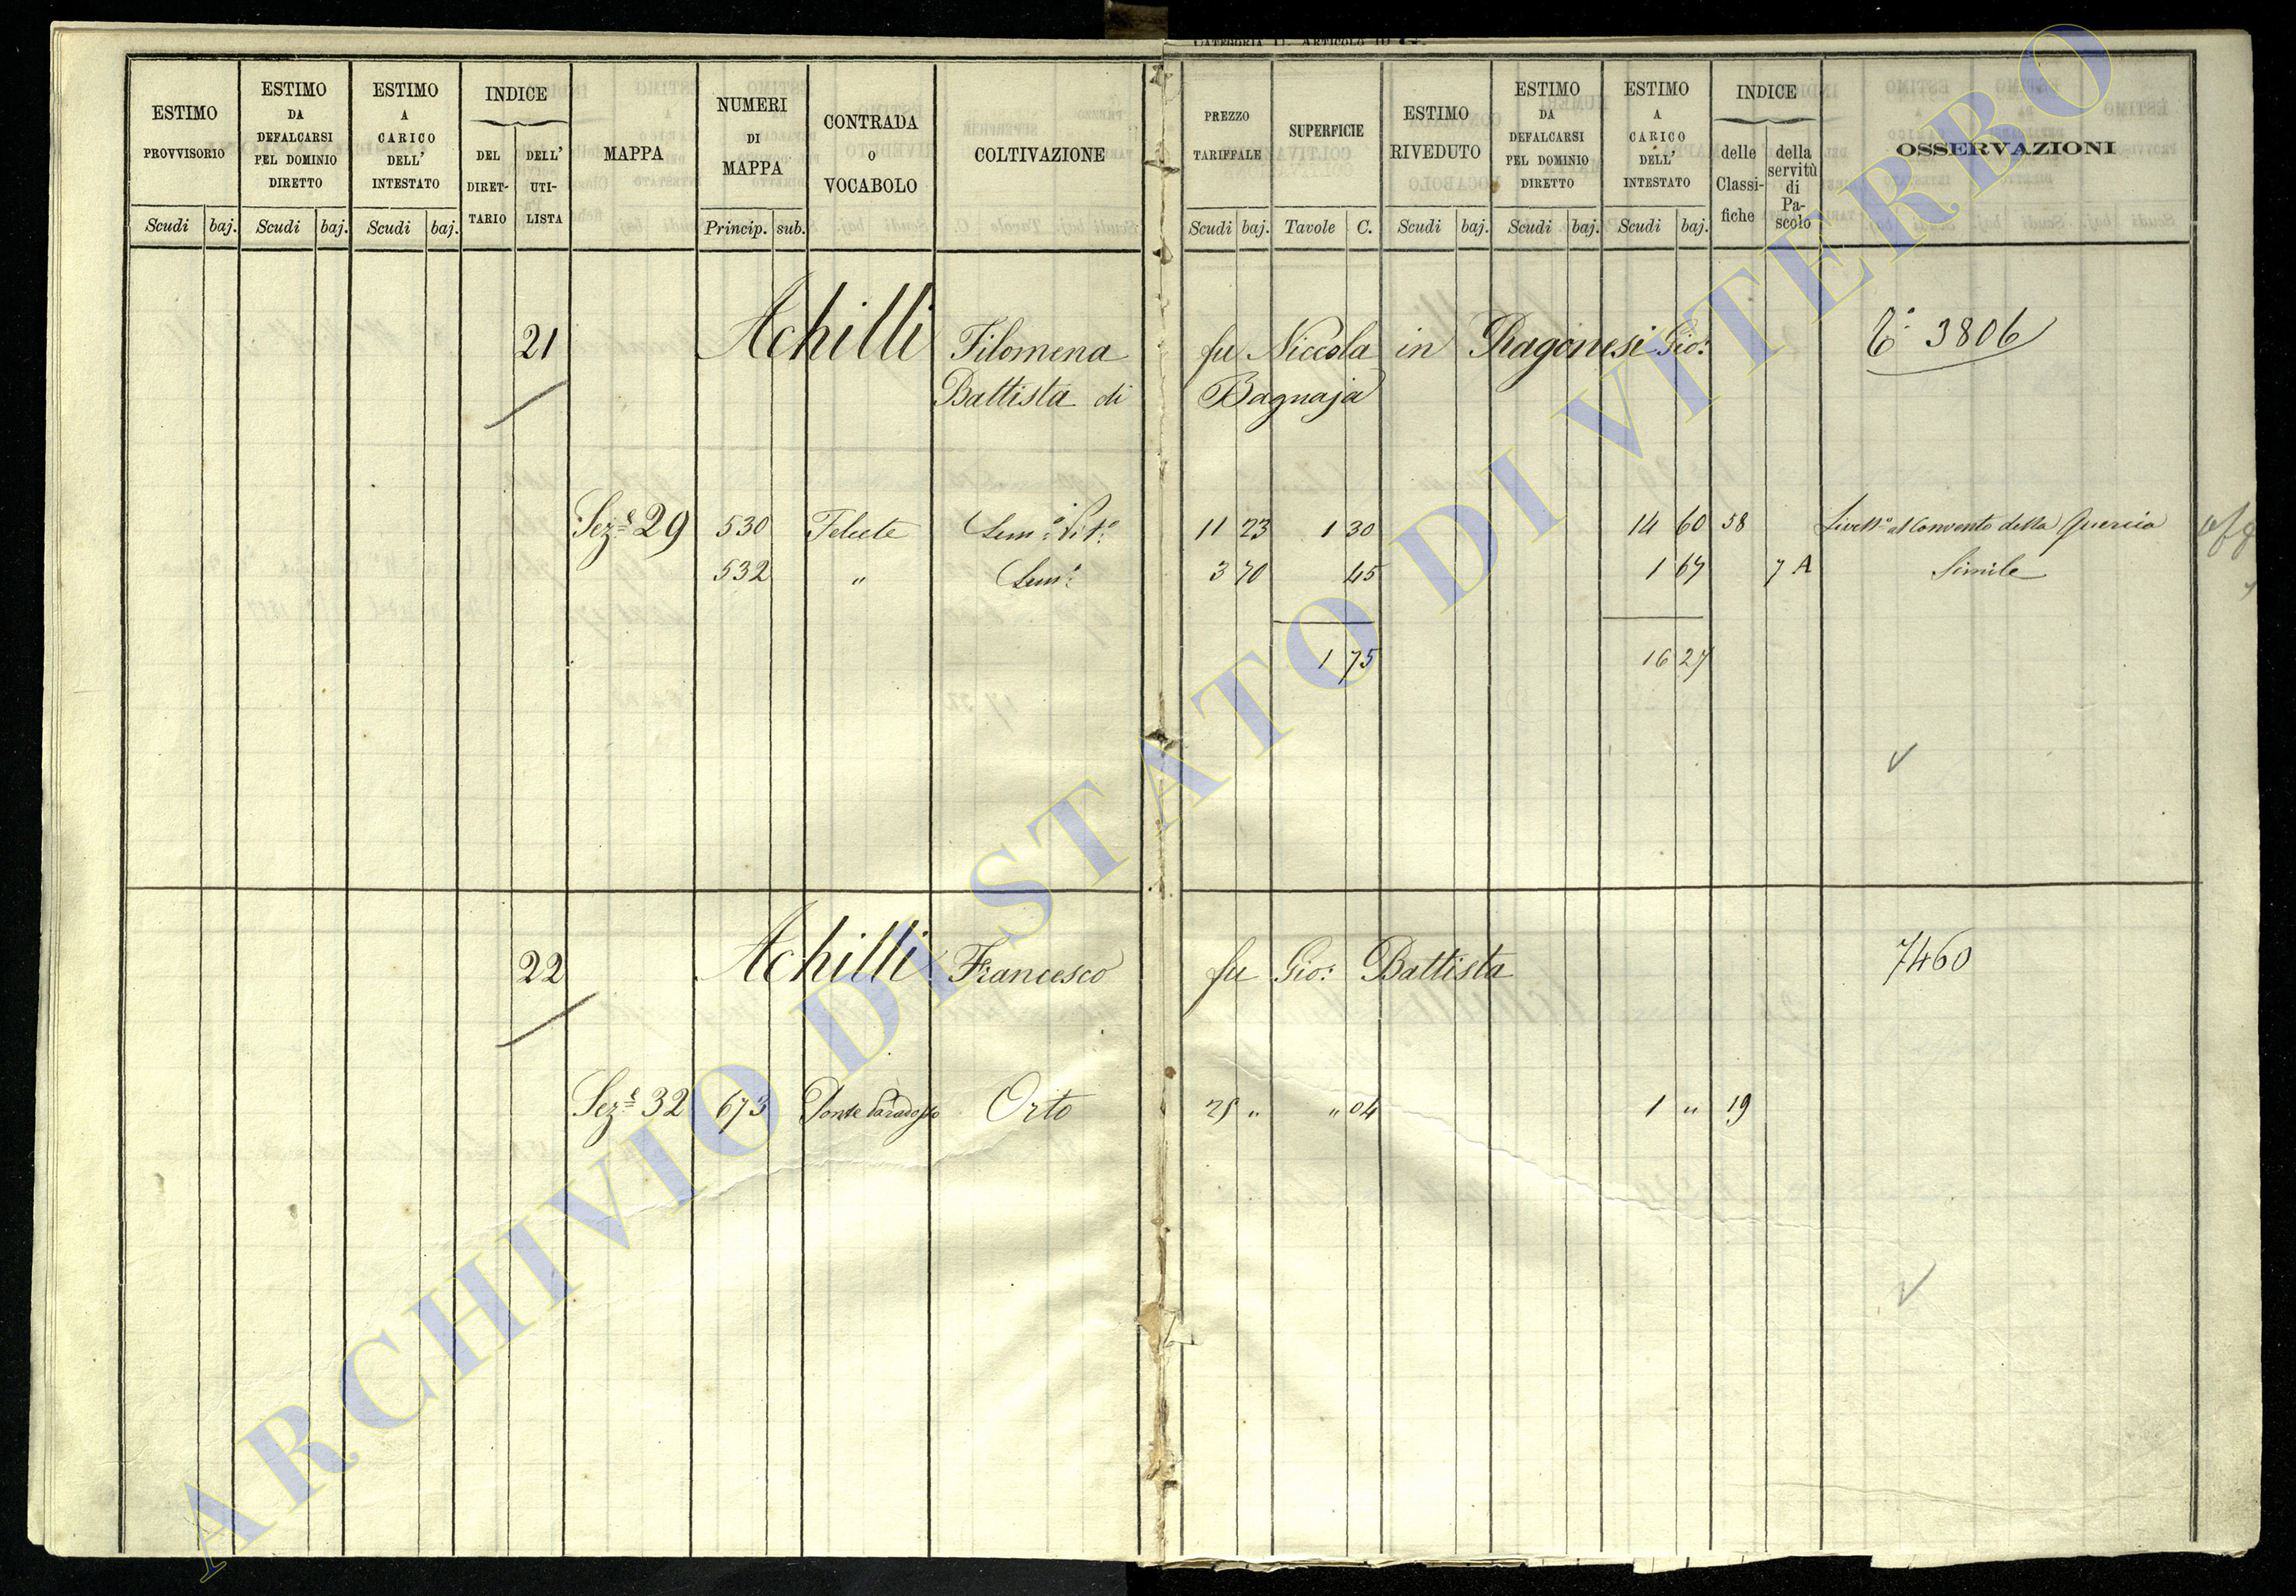 CATEGORIA II. ARTICOLO 10
ESTIMO PROVVISORIO
ESTIMO DA DEFALCARSI PEL DOMINIO DIRETTO
ESTIMO A CARICO DELL' INTESTATO
INDICE
DEL DIRET-TARIO
DELL' UTI-LISTA
MAPPA
NUMERI DI MAPPA
CONTRADA O VOCABOLO
COLTIVAZIONE
PREZZO TARIFFALE
SUPERFICIE
ESTIMO RIVEDUTO
ESTIMO DA DEFALCARSI PEL DOMINIO DIRETTO
ESTIMO A CARICO DELL' INTESTATO
INDICE
delle Classi-fiche
della servitù di Pa-scolo
OSSERVAZIONI
Scudi baj. Scudi baj. Scudi baj. Princip. sub. Scudi baj. Tavole C. Scudi baj. Scudi baj. Scudi baj.
21 Achilli Filomena fu Niccola in Ragonesi Gio: 3806
Battista di Bagnaja
Sez.e 29 530 Felcete Sem.o Vit.o 11 23 1 30 14 60 58 Livell.o al Convento della Quercia
532 " Sem.o 3 70 45 1 67 7 A Simile
1 75 16 27
22 Achilli Francesco fu Gio: Battista 7460
Sez.e 32 673 Ponte Paradosso Orto 25 " " 04 1 " 19
ARCHIVIO DI STATO DI VITERBO